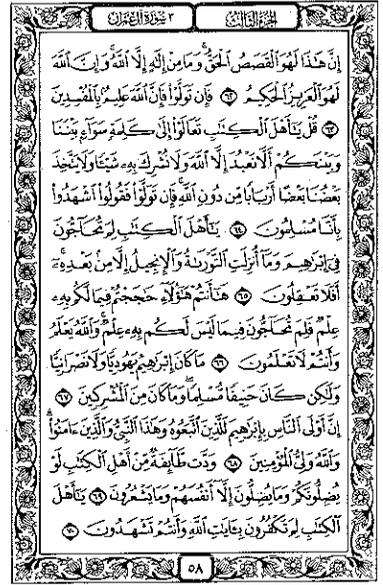 الجزء الثالث ٣ سورة آل عمران
إِنَّ هَٰذَا لَهُوَ ٱلْقَصَصُ ٱلْحَقُّ وَمَا مِنْ إِلَٰهٍ إِلَّا ٱللَّهُ وَإِنَّ ٱللَّهَ
لَهُوَ ٱلْعَزِيزُ ٱلْحَكِيمُ ٦٢ فَإِن تَوَلَّوْا۟ فَإِنَّ ٱللَّهَ عَلِيمٌۢ بِٱلْمُفْسِدِينَ
٦٣ قُلْ يَٰٓأَهْلَ ٱلْكِتَٰبِ تَعَالَوْا۟ إِلَىٰ كَلِمَةٍ سَوَآءٍۭ بَيْنَنَا
وَبَيْنَكُمْ أَلَّا نَعْبُدَ إِلَّا ٱللَّهَ وَلَا نُشْرِكَ بِهِۦ شَيْـًٔا وَلَا يَتَّخِذَ
بَعْضُنَا بَعْضًا أَرْبَابًا مِّن دُونِ ٱللَّهِ فَإِن تَوَلَّوْا۟ فَقُولُوا۟ ٱشْهَدُوا۟
بِأَنَّا مُسْلِمُونَ ٦٤ يَٰٓأَهْلَ ٱلْكِتَٰبِ لِمَ تُحَآجُّونَ
فِىٓ إِبْرَٰهِيمَ وَمَآ أُنزِلَتِ ٱلتَّوْرَىٰةُ وَٱلْإِنجِيلُ إِلَّا مِنۢ بَعْدِهِۦٓ
أَفَلَا تَعْقِلُونَ ٦٥ هَٰٓأَنتُمْ هَٰٓؤُلَآءِ حَٰجَجْتُمْ فِيمَا لَكُم بِهِۦ
عِلْمٌ فَلِمَ تُحَآجُّونَ فِيمَا لَيْسَ لَكُم بِهِۦ عِلْمٌ وَٱللَّهُ يَعْلَمُ
وَأَنتُمْ لَا تَعْلَمُونَ ٦٦ مَا كَانَ إِبْرَٰهِيمُ يَهُودِيًّا وَلَا نَصْرَانِيًّا
وَلَٰكِن كَانَ حَنِيفًا مُّسْلِمًا وَمَا كَانَ مِنَ ٱلْمُشْرِكِينَ ٦٧
إِنَّ أَوْلَى ٱلنَّاسِ بِإِبْرَٰهِيمَ لَلَّذِينَ ٱتَّبَعُوهُ وَهَٰذَا ٱلنَّبِىُّ وَٱلَّذِينَ ءَامَنُوا۟
وَٱللَّهُ وَلِىُّ ٱلْمُؤْمِنِينَ ٦٨ وَدَّت طَّآئِفَةٌ مِّنْ أَهْلِ ٱلْكِتَٰبِ لَوْ
يُضِلُّونَكُمْ وَمَا يُضِلُّونَ إِلَّآ أَنفُسَهُمْ وَمَا يَشْعُرُونَ ٦٩ يَٰٓأَهْلَ
ٱلْكِتَٰبِ لِمَ تَكْفُرُونَ بِـَٔايَٰتِ ٱللَّهِ وَأَنتُمْ تَشْهَدُونَ ٧٠
٥٨